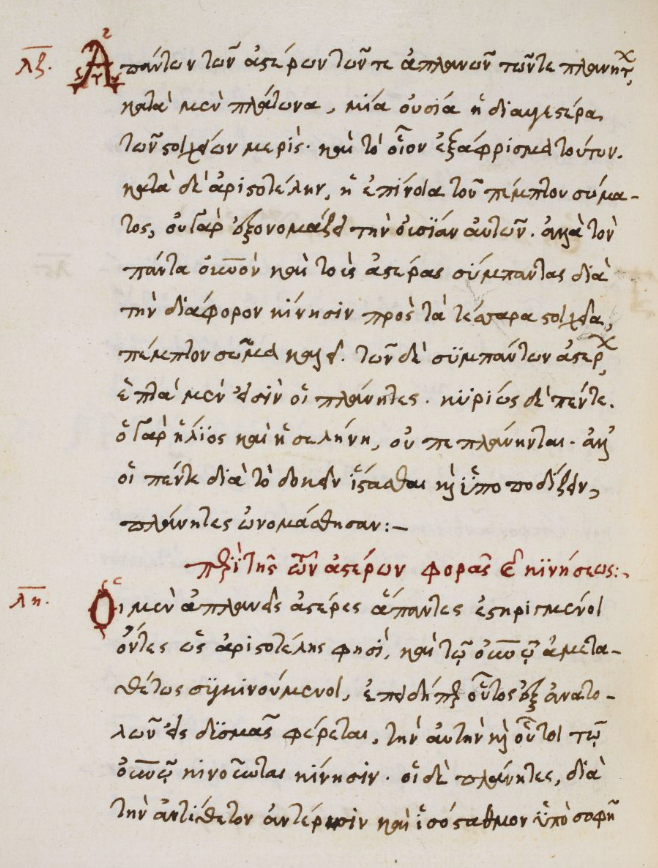 λζ. Ἁπάντων τῶν ἀστέρων τῶν τε ἀπλανῶν τῶν τε πλανητῶν,
κατὰ μὲν πλάτωνα, μία οὐσία ἡ διαυγεστέρα
τῶν στοιχείων μερίς· καὶ τὸ οἷον ἐξάφρισμα τούτων.
κατὰ δὲ ἀριστοτέλην, ἡ ἐπίνοια τοῦ πέμπτου σώμα-
τος, οὐ γὰρ ἐξονομάζει τὴν οὐσίαν αὐτῶν. ἀλλὰ τὸν
πάντα οὐρανὸν καὶ τοὺς ἀστέρας σύμπαντας διὰ
τὴν διάφορον κίνησιν πρὸς τὰ τέσσαρα στοιχεῖα,
πέμπτον σῶμα καλεῖ. τῶν δὲ συμπάντων ἀστέρων
ἑπτὰ μέν εἰσιν οἱ πλάνητες. κυρίως δὲ πέντε.
ὁ γὰρ ἥλιος καὶ ἡ σελήνη, οὐ πεπλάνηνται. ἀλλ'
οἱ πέντε διὰ τὸ δοκεῖν ἵστασθαι καὶ ὑποποδίζειν,
πλάνητες ὠνομάσθησαν:–
περὶ τῆς τῶν ἀστέρων φορᾶς καὶ κινήσεως:
λη. Οἱ μὲν ἀπλανεῖς ἀστέρες ἅπαντες ἐστηριγμένοι
ὄντες ὡς ἀριστοτέλης φησί, καὶ τῷ οὐρανῷ ἀμετα-
θέτως συγκινούμενοι, ἐπειδήπερ οὗτος ἐξ ἀνατο-
λῶν εἰς δυσμὰς φέρεται, τὴν αὐτὴν καὶ οὗτοι τῷ
οὐρανῷ κινοῦνται κίνησιν. οἱ δὲ πλάνητες, διὰ
τὴν ἀντίθετον ἀντέρεισιν καὶ ἰσόσταθμον ὑπὸ σοφῆ